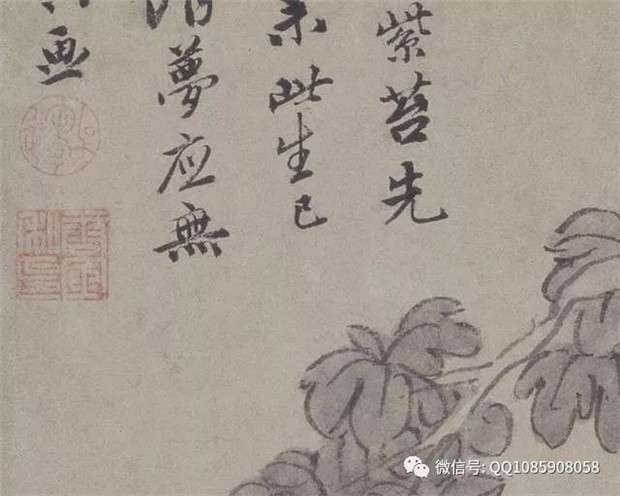 紫苔先
未此生已
夢应無
画
微信号: QQ1085908058